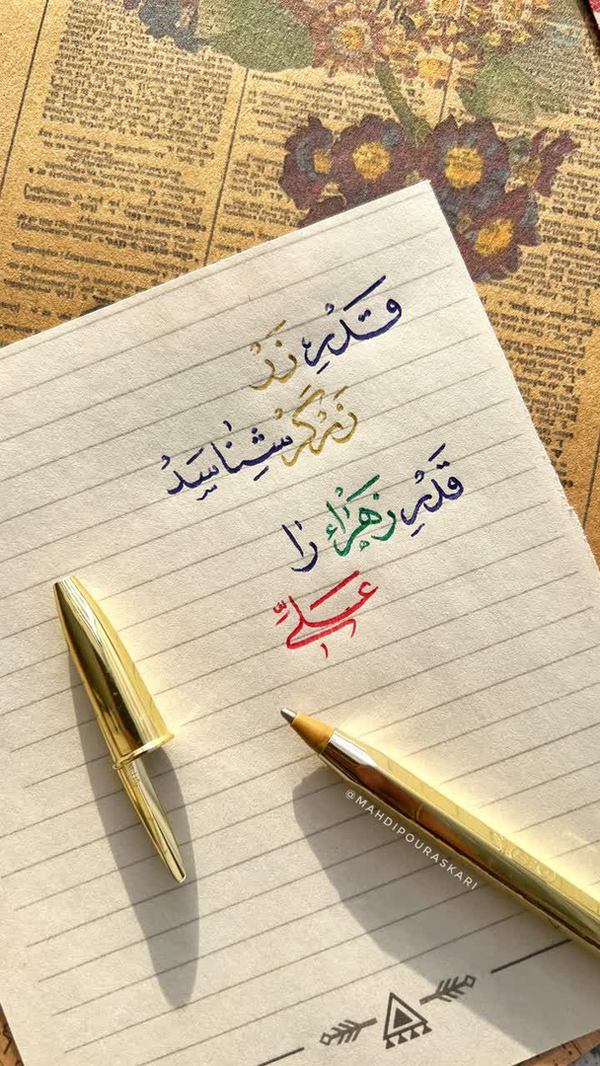 قَدْرِ زَرْ
زَرْگَرْ شِنٰاسَدْ
قَدْرِ زَهْرٰاءِ رٰا
عَلِیّ
@MAHDIPOURASKARI